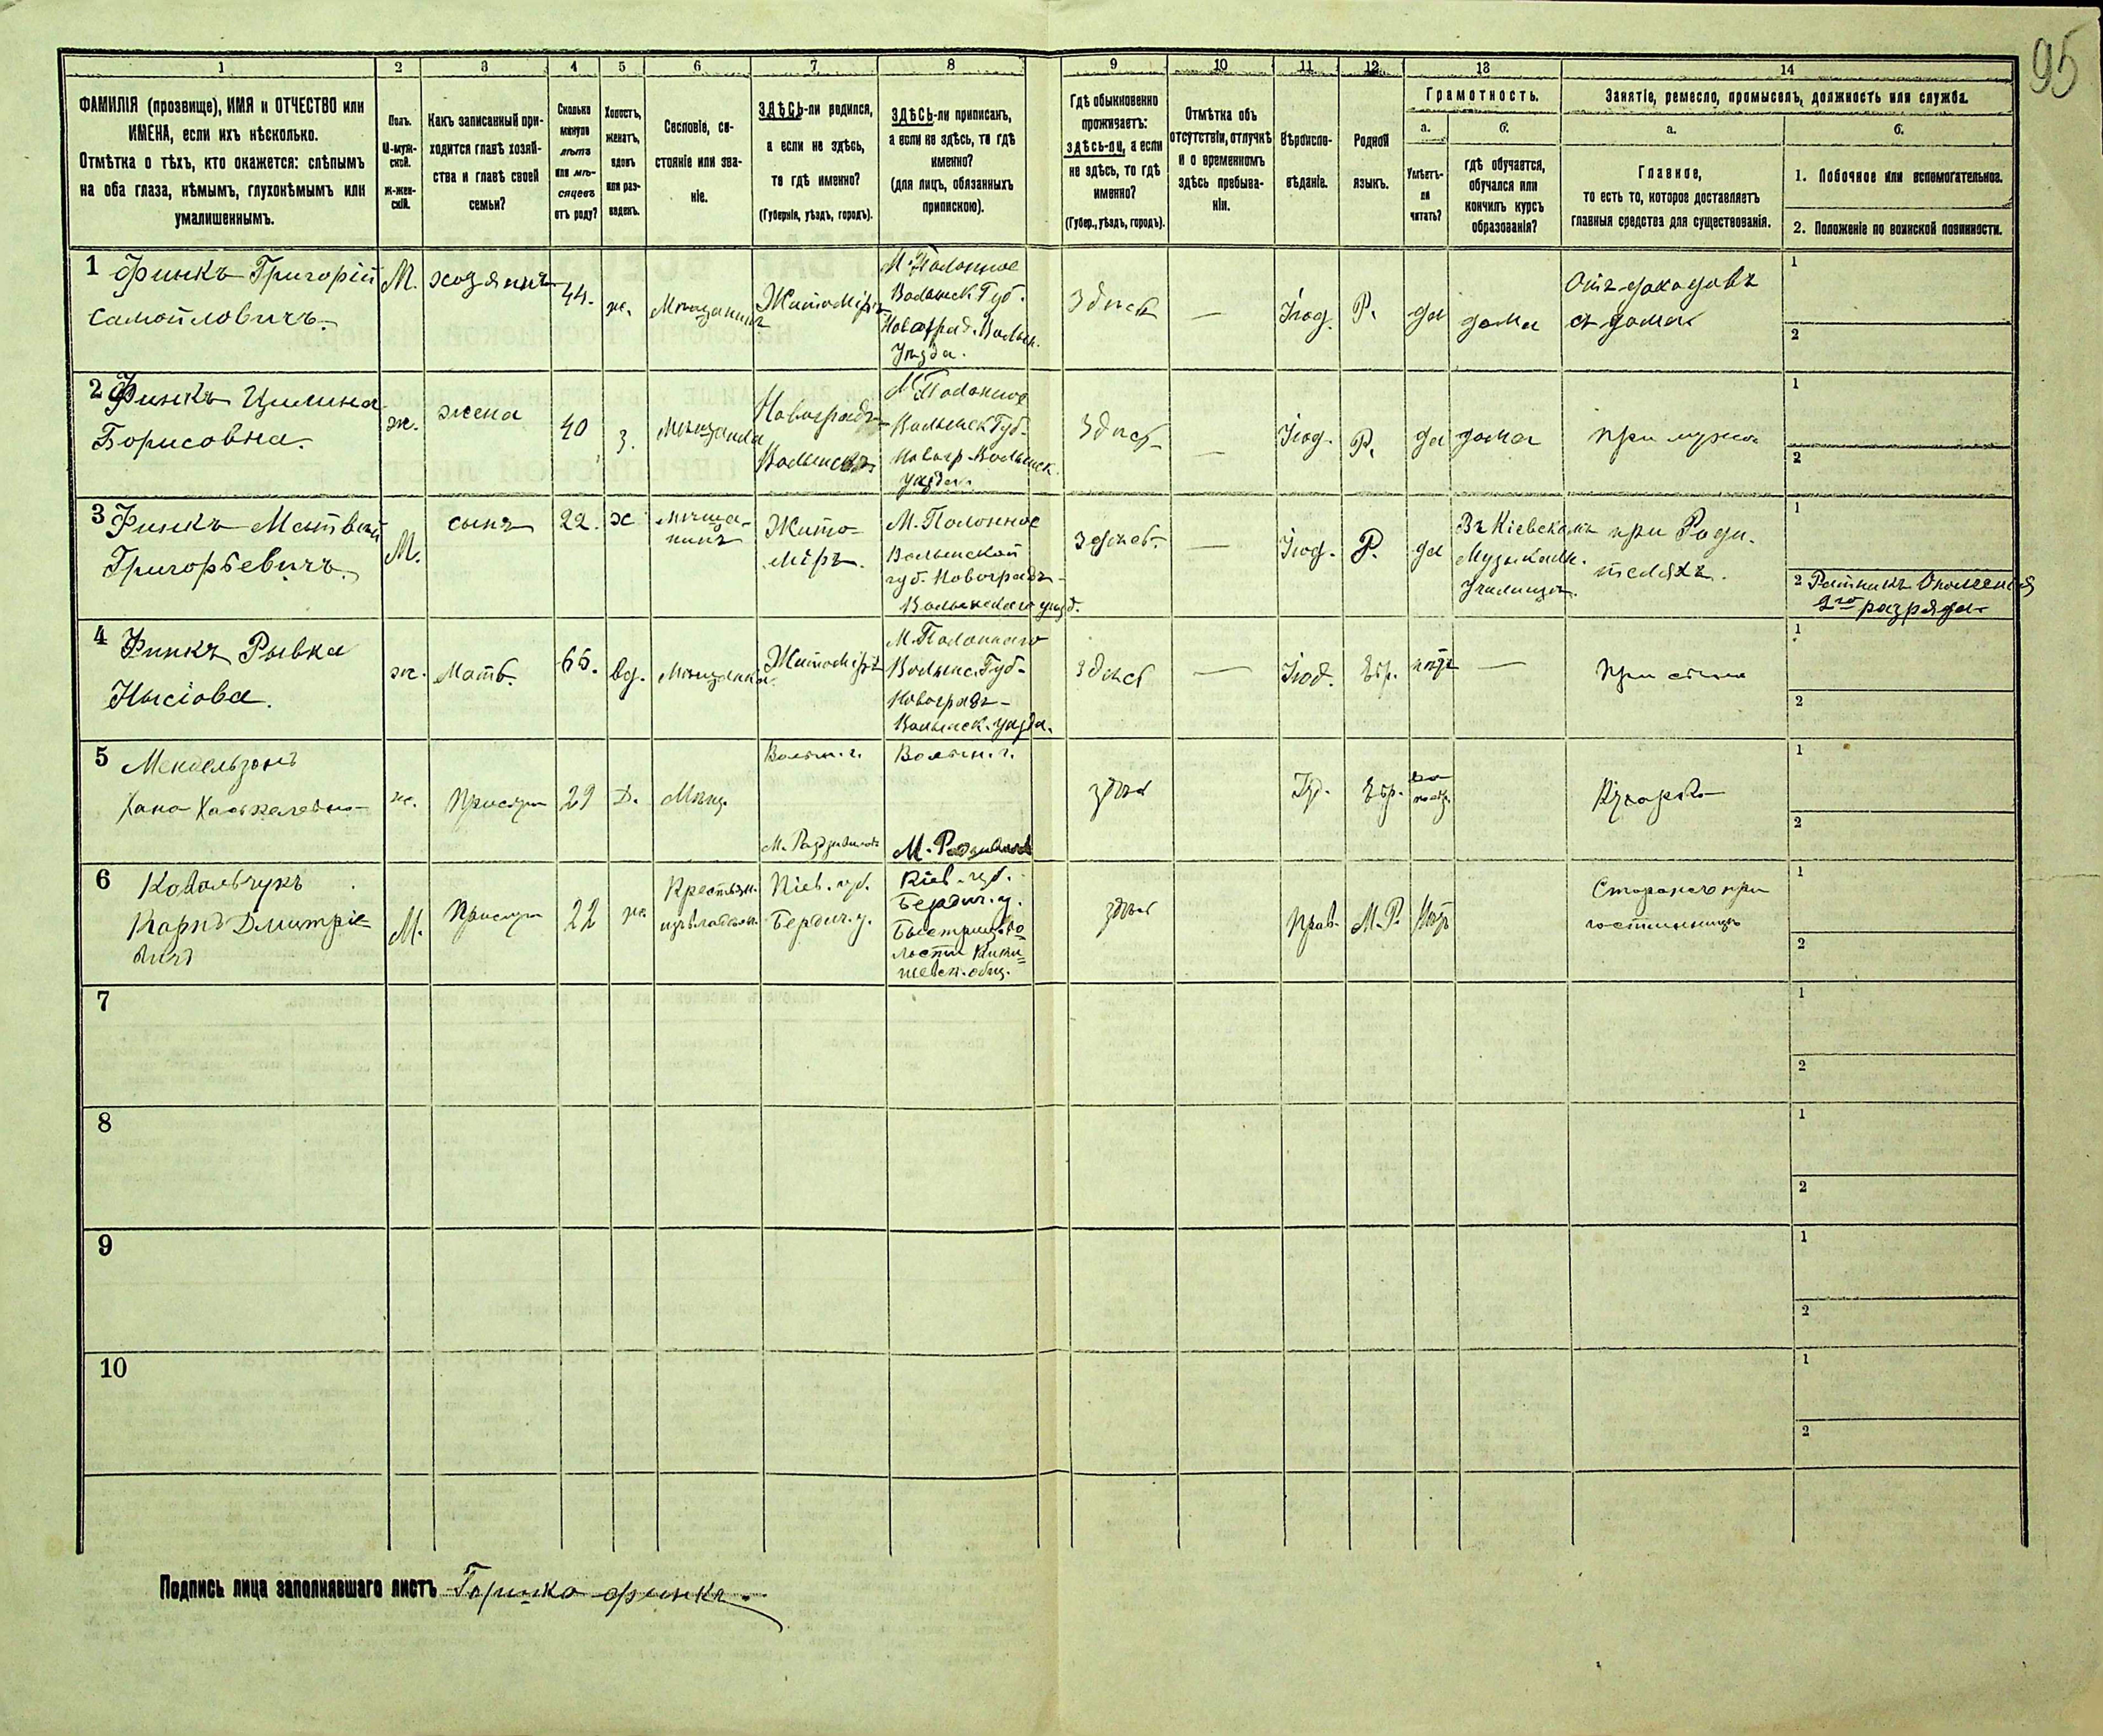 95
1 2 3 4 5 6 7 8 9 10 11 12 13 14
ФАМИЛІЯ (прозвище), ИМЯ и ОТЧЕСТВО или
ИМЕНА, если ихъ нѣсколько.
Отмѣтка о тѣхъ, кто окажется: слѣпымъ
на оба глаза, нѣмымъ, глухонѣмымъ или
умалишеннымъ.
Полъ.
М-муж-
ской.
Ж-жен-
скій.
Какъ записанный при-
ходится главѣ хозяй-
ства и главѣ своей
семьи?
Сколько
минуло
лѣтъ
или мѣ-
сяцевъ
отъ роду?
Холостъ,
женатъ,
вдовъ
или раз-
веденъ.
Сословіе, со-
стояніе или зва-
ніе.
ЗДѢСЬ-ли родился,
а если не здѣсь,
то гдѣ именно?
(Губернія, уѣздъ, городъ).
ЗДѢСЬ-ли приписанъ,
а если не здѣсь, то гдѣ
именно?
(для лицъ, обязанныхъ
припискою).
Гдѣ обыкновенно
проживаетъ:
здѣсь-ли, а если
не здѣсь, то гдѣ
именно?
(Губер., уѣздъ, городъ).
Отмѣтка объ
отсутствіи, отлучкѣ
и о временномъ
здѣсь пребыва-
ніи.
Вѣроиспо-
вѣданіе.
Родной
языкъ.
Грамотность.
а.
Умѣетъ-
ли
читать?
б.
гдѣ обучается,
обучался или
кончилъ курсъ
образованія?
Занятіе, ремесло, промыселъ, должность или служба.
а.
Главное,
то есть то, которое доставляетъ
главныя средства для существованія.
б.
1. Побочное или вспомогательное.
2. Положеніе по воинской повинности.
1 Финкъ Григорій
Самойловичъ.
М.
хозяинъ
44.
ж.
Мѣщанинъ
Житоміръ
М. Полонное
Волынск Губ.
Новоград. Волын.
Уѣзда.
Здѣсь
—
Іюд.
Р.
да
дома
Отъ доходовъ
съ дома
1
2
2 Финкъ Цилина
Борисовна.
ж.
жена
40
з.
Мѣщанка
Новоградъ-
Волынскъ
М. Полонное
Волынск Губ.
Новогр. Волынск.
уѣзда.
Здѣсь
—
Іюд.
Р.
да
дома
при мужѣ
1
2
3 Финкъ Матвѣй
Григорьевичъ.
М.
сынъ
22.
х
мѣща-
нинъ
Жито-
міръ.
М. Полонное
Волынской
губ. Новоградъ-
Волынскаго уѣзд.
здѣсь.
—
Іюд.
Р.
да
Въ Кіевскомъ
Музыкальн.
Училищѣ.
при Роди-
теляхъ.
1
2 Ратникъ Ополченія
2го разряда
4 Финкъ Рывка
Нысіова.
ж.
Мать.
65.
вд.
Мѣщанка.
Житоміръ
М. Полоннаго
Волынс. Губ-
Новоградъ-
Волынск. уѣзда.
здѣсь
—
Іюд.
Евр.
нѣтъ
—
при сынѣ
1
2
5 Мендельзонъ
Хана Хаскелевна
ж.
Прислуга
29
Д.
Мѣщ.
Волын. г.
М. Радзивиловъ
Волын. г.
М. Радзивиловъ
здѣсь
Іуд.
Евр.
Кухарка
1
2
6 Ковальчукъ
Карпъ Дмитріе-
вичъ
М.
Прислуга
22
ж.
Крестьян.
Кіев. губ.
Бердич. у.
Кіев. губ.
Бердич. у.
Быстрицк. во-
лости Кики-
шевск. общ.
здѣсь
Прав.
М. Р.
Нѣтъ
Сторожемъ при
гостинницѣ
1
2
7
1
2
8
1
2
9
1
2
10
1
2
Подпись лица заполнявшаго листъ Гершко Финкъ.